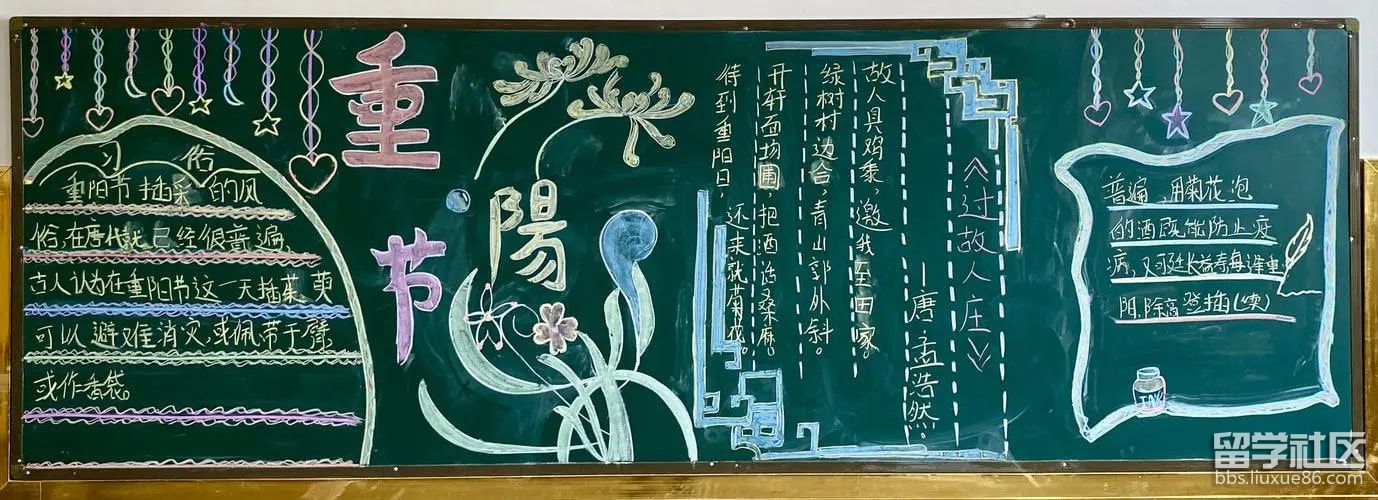 习俗
重阳节插采的风
俗,在唐代就已经很普遍,
古人认为在重阳节这一天插茱萸
可以避难消灾,或佩带于臂,
或作香袋。
重
陽
节
《过故人庄》
—唐·孟浩然。
故人具鸡黍,邀我至田家。
绿树村边合,青山郭外斜。
开轩面场圃,把酒话桑麻。
待到重阳日,还来就菊花。
普遍,用菊花泡
的酒既能防止疫
病,又可延长益寿每逢重
阳,除高登插(续)
INK
留学社区
bbs.liuxue86.com